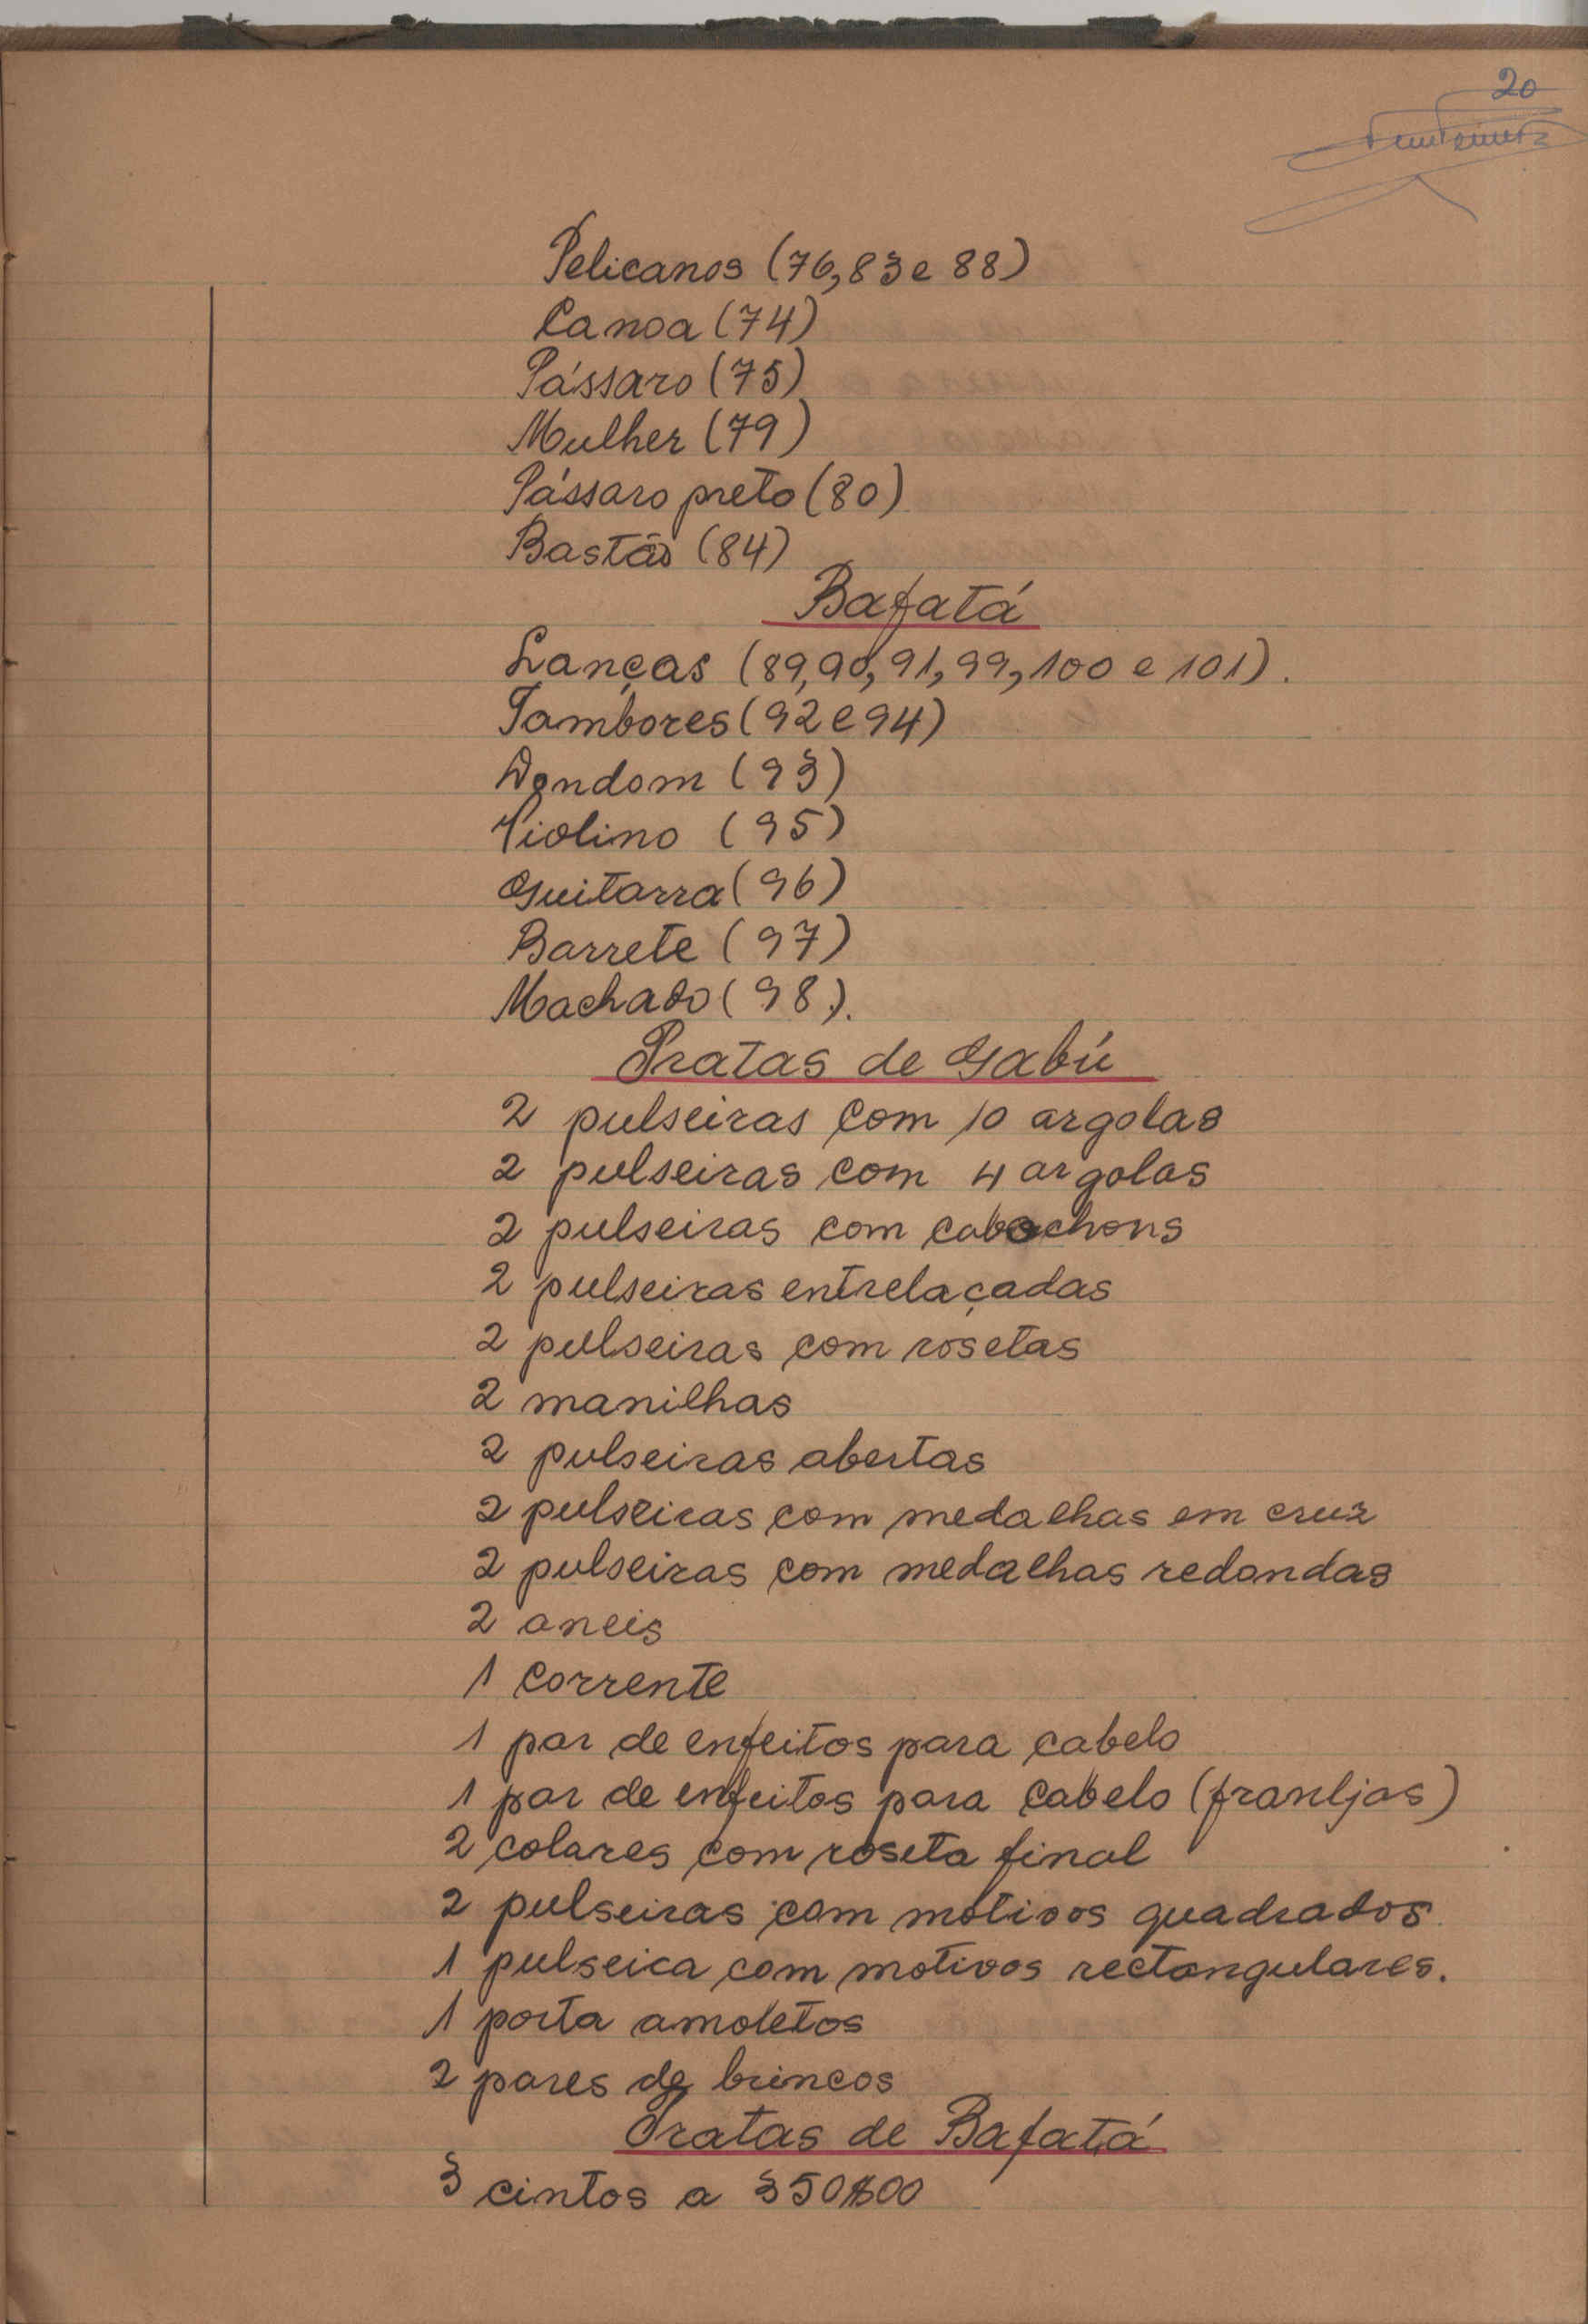 20
Pelicanos (76, 83 e 88)
Canoa (74)
Pássaro (75)
Mulher (79)
Pássaro preto (80)
Bastão (84)
Bafatá
Lanças (89, 90, 91, 99, 100 e 101).
Tambores (92 e 94)
Dondom (93)
Violino (95)
Guitarra (96)
Barrete (97)
Machado (98).
Pratas de Gabú
2 pulseiras com 10 argolas
2 pulseiras com 4 argolas
2 pulseiras com cabochons
2 pulseiras entrelaçadas
2 pulseiras com rosetas
2 manilhas
2 pulseiras abertas
2 pulseiras com medalhas em cruz
2 pulseiras com medalhas redondas
2 aneis
1 corrente
1 par de enfeitos para cabelo
1 par de enfeitos para cabelo (franljas)
2 colares com roseta final
2 pulseiras com motivos quadrados
1 pulseira com motivos rectangulares.
1 porta amoletos
2 pares de brincos
Pratas de Bafatá
3 cintos a 350$00